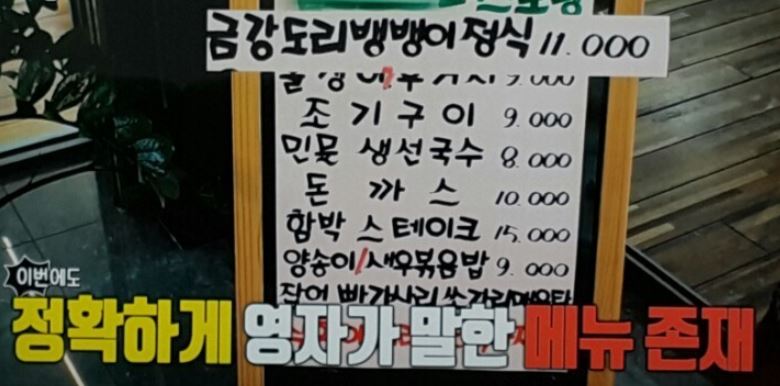 금강도리뱅뱅이정식 11.000
9.000
조기구이 9.000
민물 생선국수 8.000
돈까스 10.000
함박 스테이크 15.000
양송이/새우볶음밥 9.000
잡어 빠가사리 쏘가리매운탕
이번에도
정확하게 영자가 말한 메뉴 존재